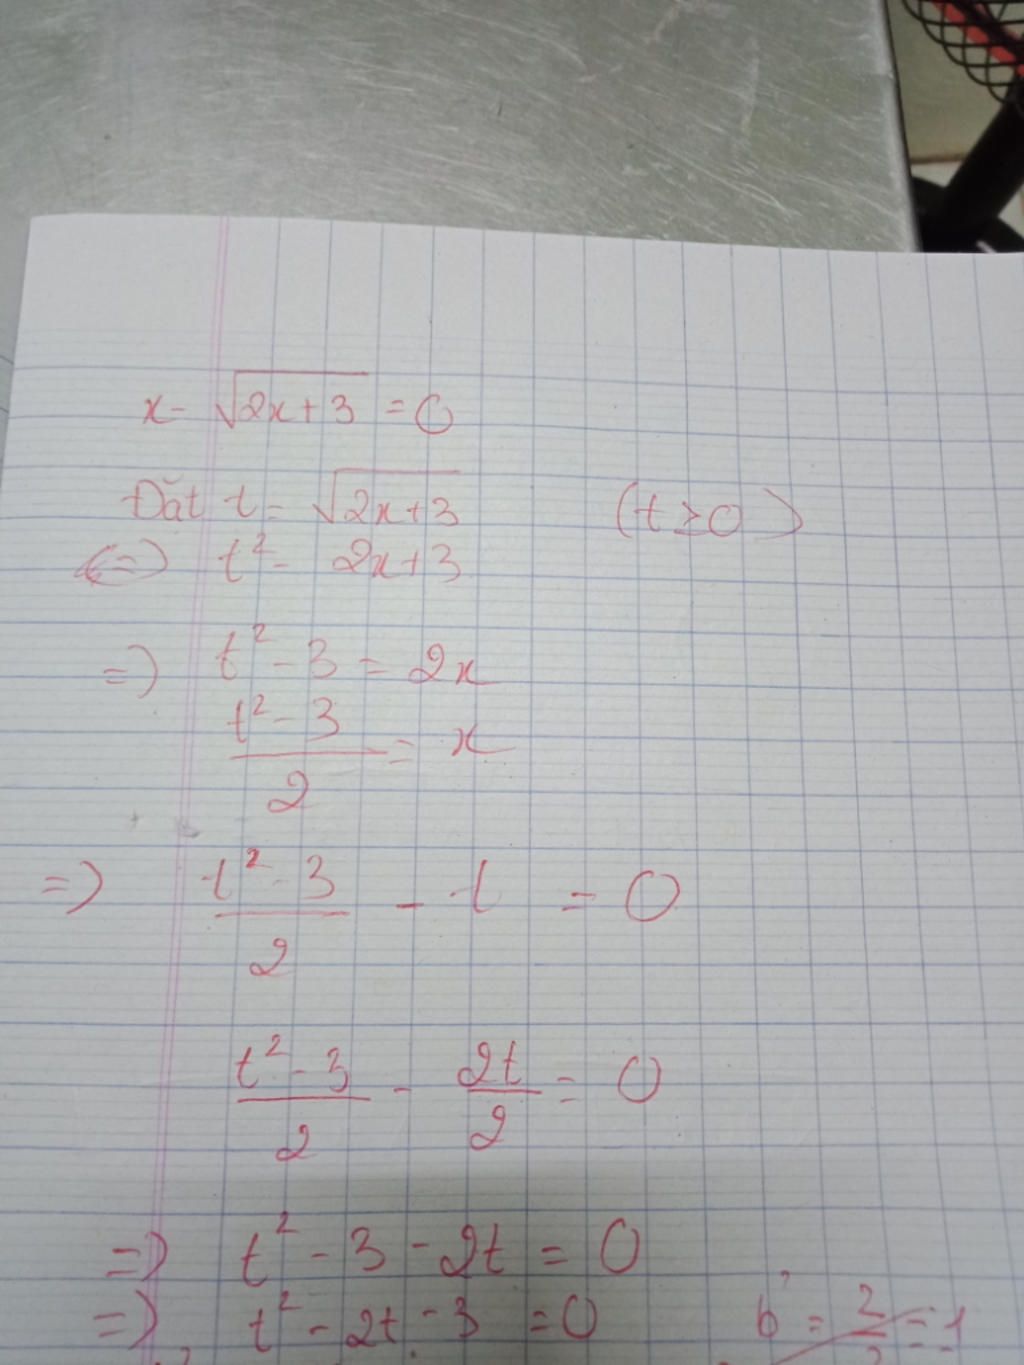 x - √2x+3 = 0
Đặt t = √2x+3 (t ≥ 0)
<=> t² = 2x+3
=> t² - 3 = 2x
t² - 3 / 2 = x
=> t² - 3 / 2 - t = 0
t² - 3 / 2 - 2t / 2 = 0
=> t² - 3 - 2t = 0
=> t² - 2t - 3 = 0 b' =